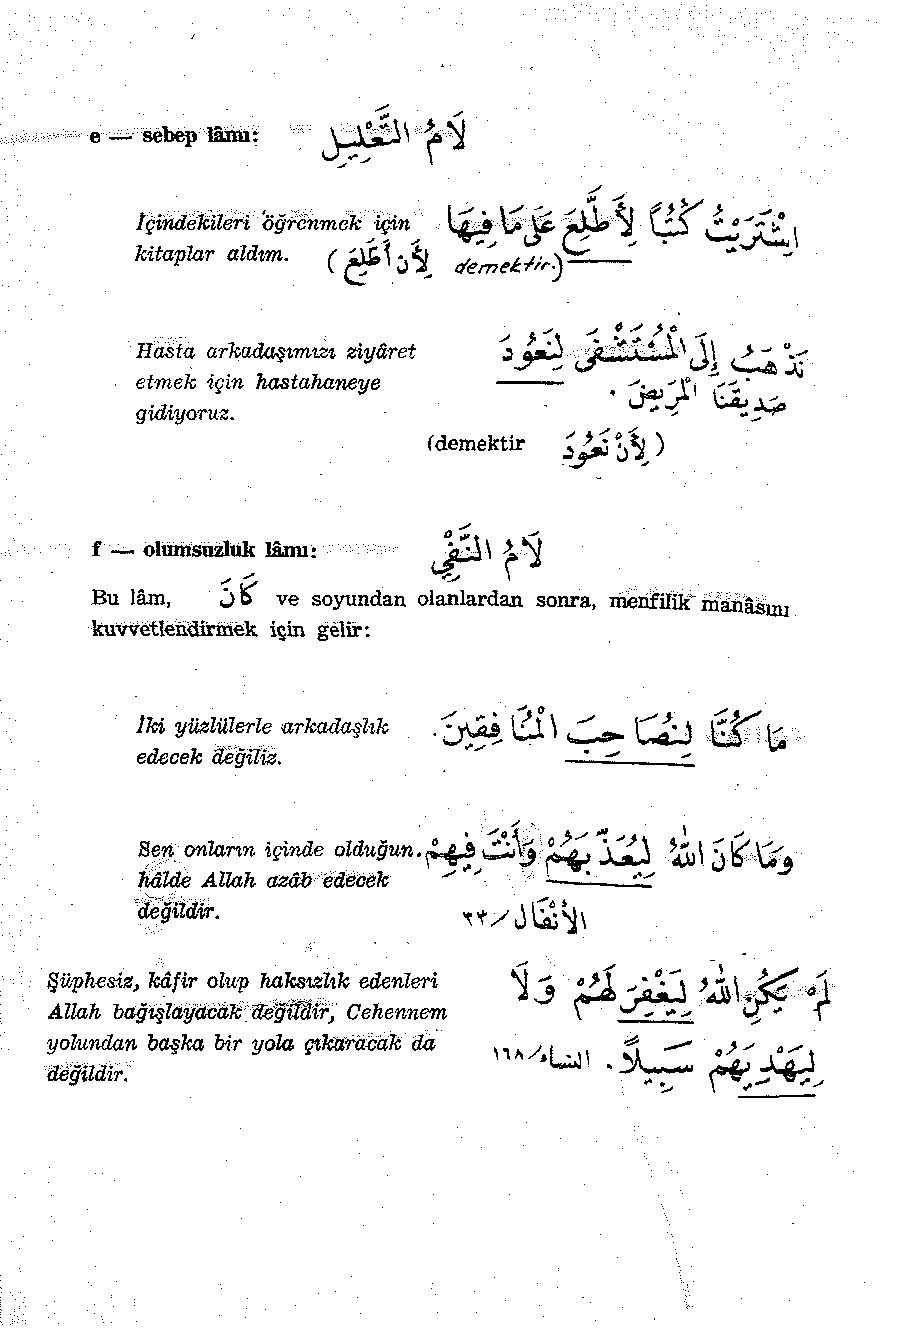 e — sebep lâmı: لَامُ التَّعْلِيلِ
İçindekileri öğrenmek için اِشْتَرَيْتُ كُتُبًا لِأَطَّلِعَ عَلَى مَا فِيهَا
kitaplar aldım. (لِأَنْ أَطَّلِعَ demektir.)
Hasta arkadaşımızı ziyâret نَذْهَبُ إِلَى الْمُسْتَشْفَى لِنَعُودَ
etmek için hastahaneye صَدِيقَنَا الْمَرِيضَ .
gidiyoruz.
(demektir لِأَنْ نَعُودَ )
f — olumsuzluk lâmı: لَامُ النَّفْيِ
Bu lâm, كَانَ ve soyundan olanlardan sonra, menfilik manâsını
kuvvetlendirmek için gelir:
İki yüzlülerle arkadaşlık مَا كُنَّا لِنُصَاحِبَ الْمُنَافِقِينَ .
edecek değiliz.
Sen onların içinde olduğun. وَمَا كَانَ اللّٰهُ لِيُعَذِّبَهُمْ وَأَنْتَ فِيهِمْ
hâlde Allah azâb edecek
değildir. الأَنْفَال / ٣٣
Şüphesiz, kâfir olup haksızlık edenleri لَمْ يَكُنِ اللّٰهُ لِيَغْفِرَ لَهُمْ وَلَا
Allah bağışlayacak değildir, Cehennem
yolundan başka bir yola çıkaracak da لِيَهْدِيَهُمْ سَبِيلًا . النساء/١٦٨
değildir.